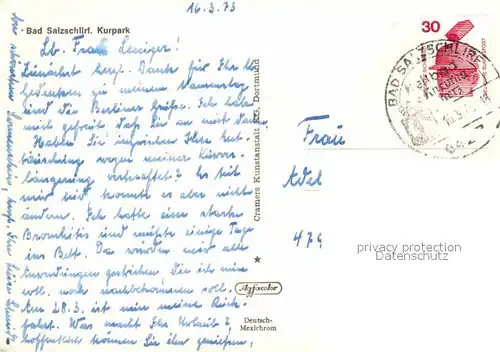 16.3.73
Bad Salzschlirf. Kurpark
Lb. Frau
Zunächst herzl. Dank für Ihr lb.
Gedenken zu meinem Namenstag
und die Berliner Grüße. Ich habe
mich gefreut, daß Sie an mich dachten.
Haben Sie inzwischen Ihre Ent-
täuschung wegen meiner Kurver-
längerung verkraftet? Es tut
mir leid konnte es aber nicht
ändern. Ich hatte eine starke
Bronchitis und mußte einige Tage
ins Bett. Da wurden mir alle
Anwendungen gestrichen die ich nun
evtl. noch nachbekommen soll.
Am 28.3. ist nun meine Rück-
fahrt. Was macht Ihr Urlaub?,
hoffentlich können Sie ihn genießen,
bei schönstem Sonnenschein, herzl. Ihre
Cramers Kunstanstalt KG. Dortmund
Agfacolor
Deutsch-
Mexichrom
30
BAD SALZSCHLIRF
16.3.73
642
Frau
479
privacy protection
Datenschutz